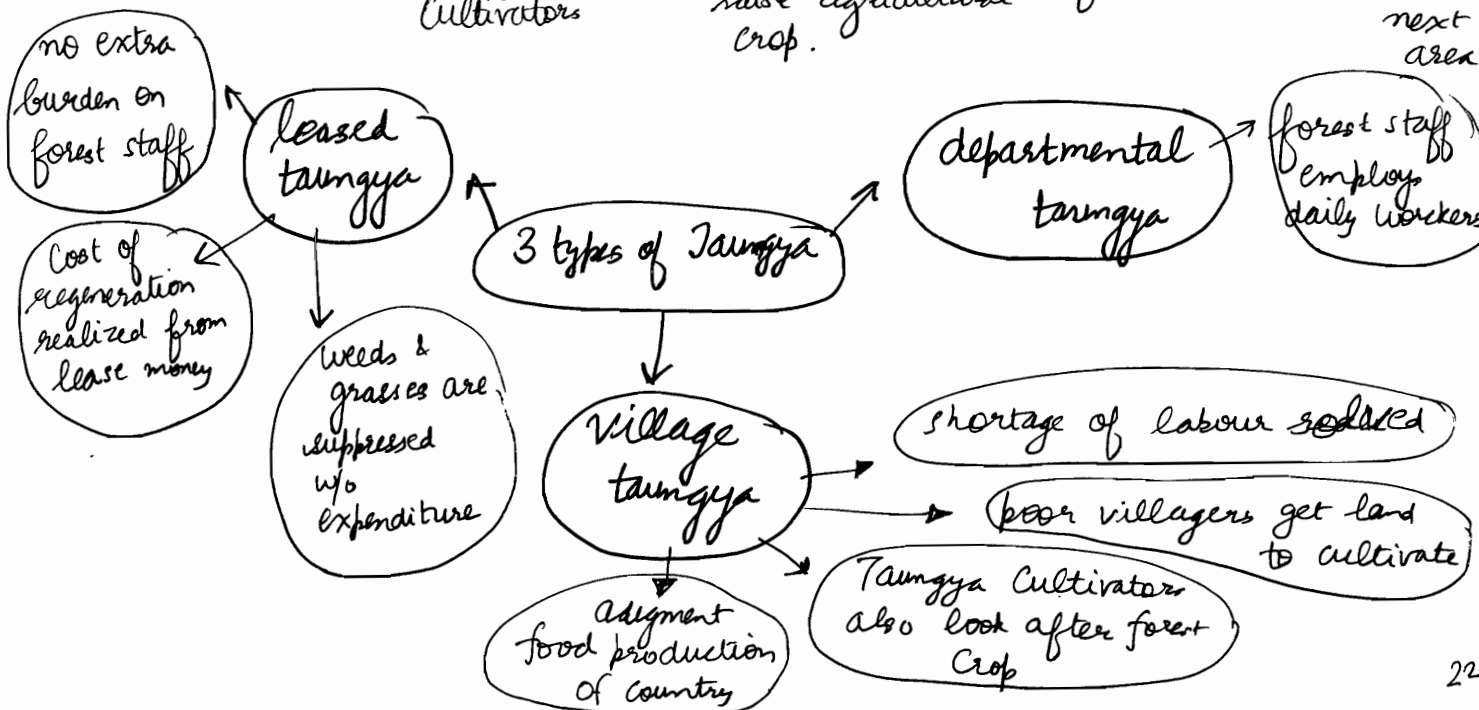 Cultivators
raise agricultural
crop.
next
area
no extra
burden on
forest staff
leased
taungya
departmental
taungya
forest staff
employs
daily workers
3 types of Taungya
Cost of
regeneration
realized from
lease money
weeds &
grasses are
suppressed
w/o
expenditure
village
taungya
shortage of labour solved
poor villagers get land
to cultivate
Taungya Cultivators
also look after forest
Crop
augment
food production
of country
22